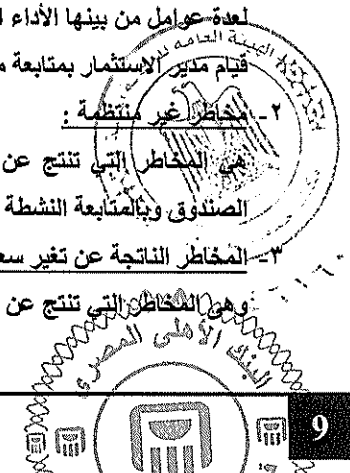 لعدة عوامل من بينها الأداء ا
قيام مدير الاستثمار بمتابعة م
الهيئة العامة
٢- مخاطر غير منتظمة :
هي المخاطر التي تنتج عن
الصندوق وبالمتابعة النشطة
٣- المخاطر الناتجة عن تغير سع
وهي المخاطر التي تنتج عن
البنك الأهلى المصرى
9